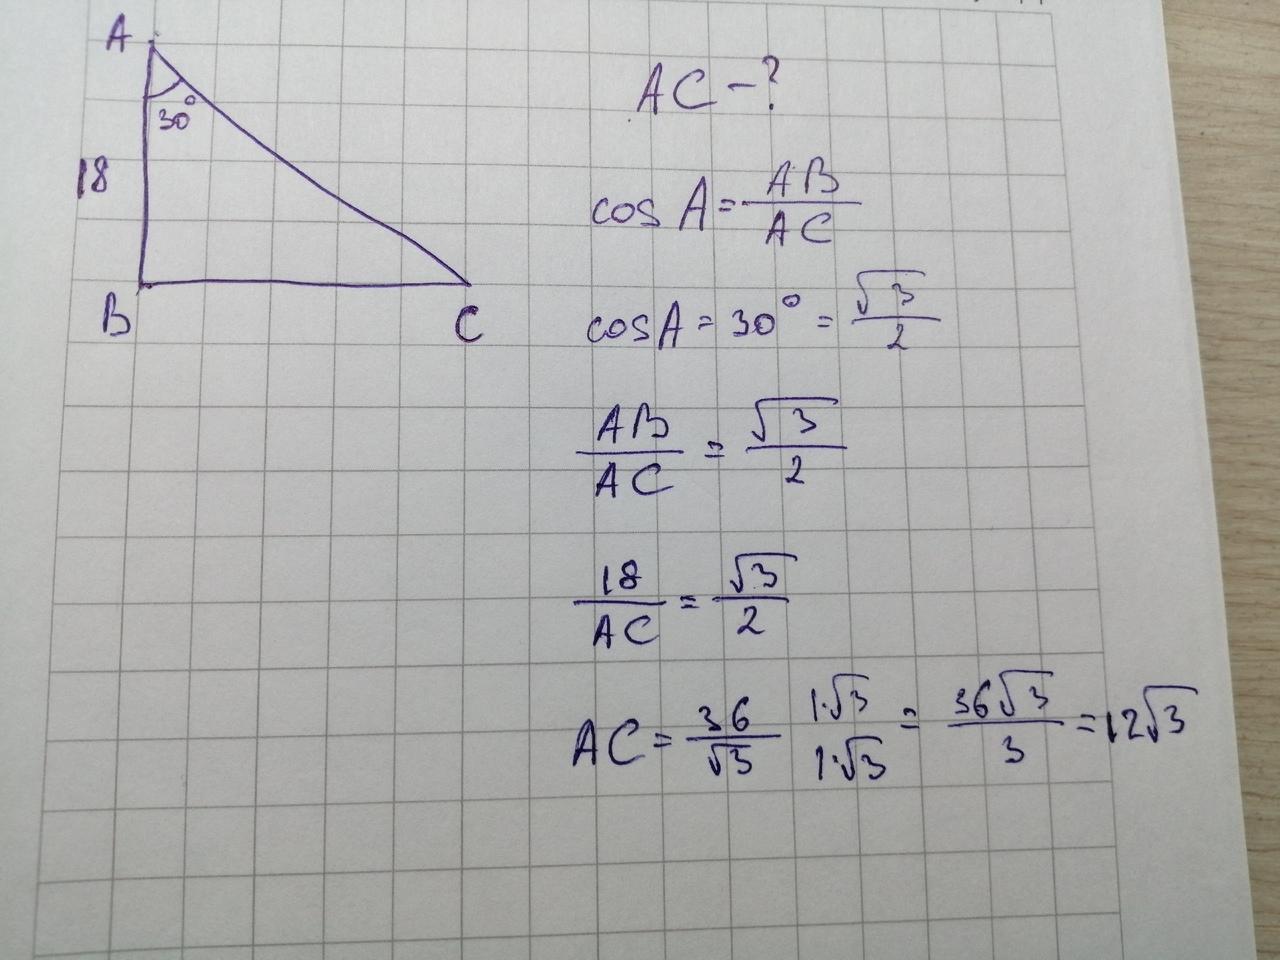 A
30°
18
B
C
AC-?
cos A = AB/AC
cos A = 30° = √3/2
AB/AC = √3/2
18/AC = √3/2
AC = 36/√3 1·√3/1·√3 = 36√3/3 = 12√3